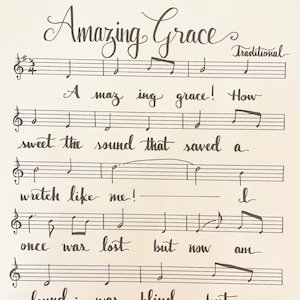 Amazing Grace
Traditional
3
4
A maz ing grace! How
sweet the sound that saved a
wretch like me! I
once was lost but now am
found; was blind, but